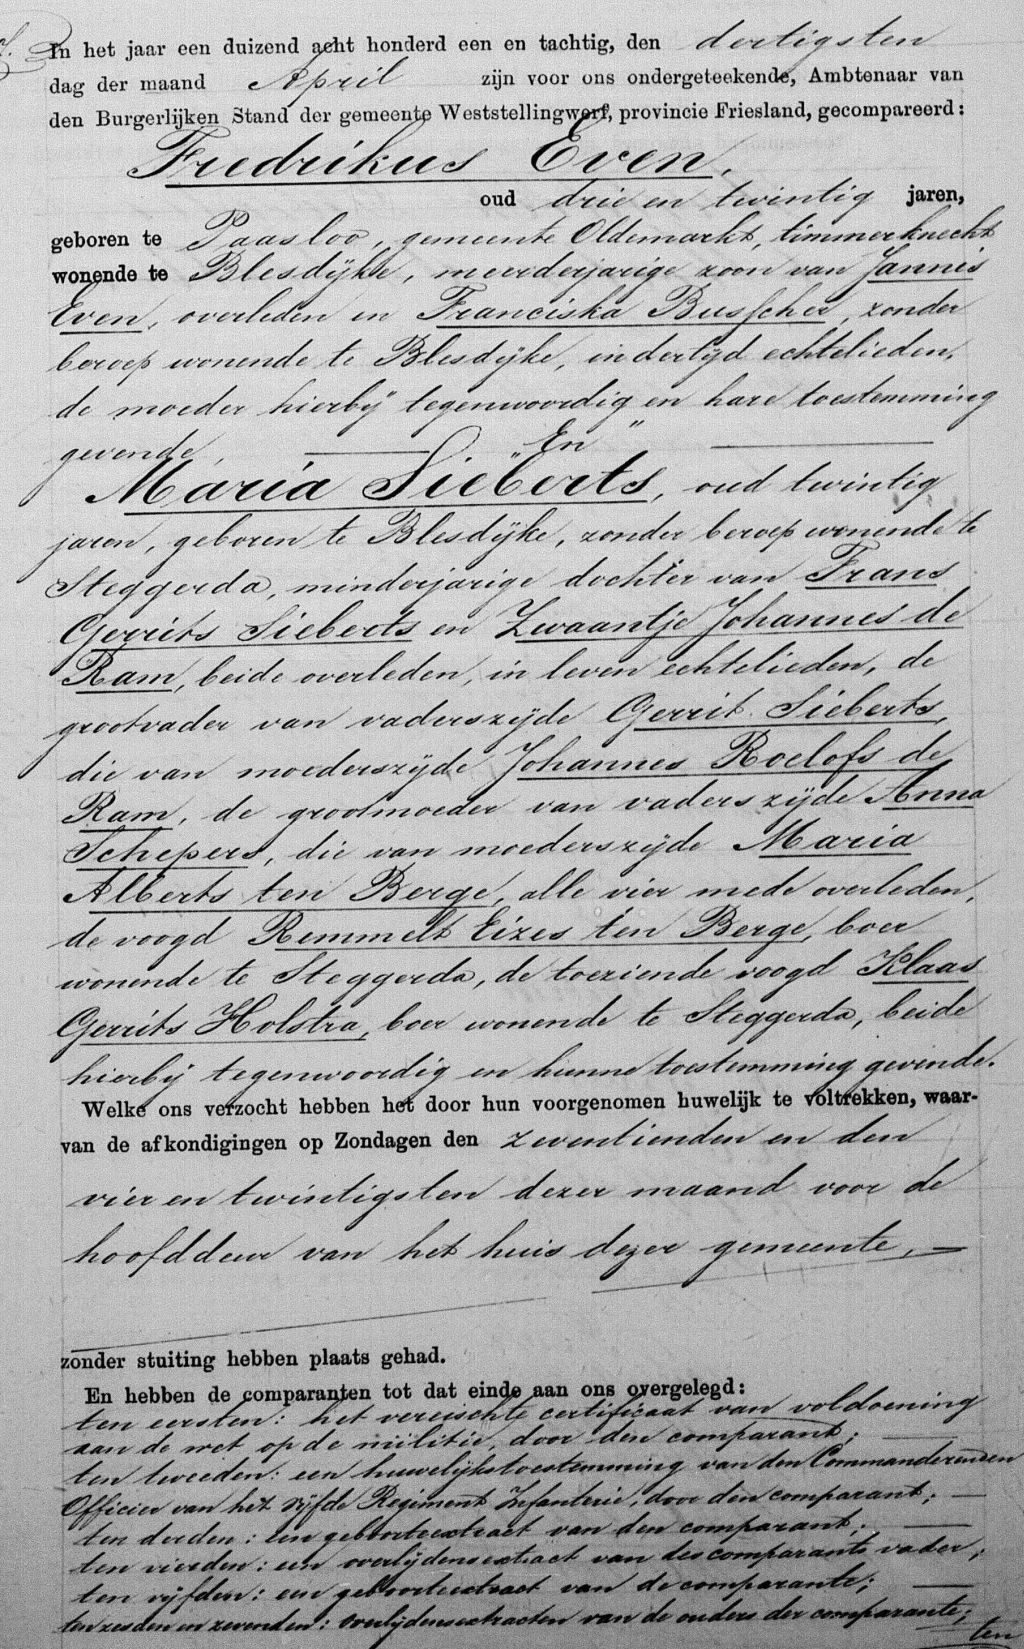 In het jaar een duizend acht honderd een en tachtig, den dertigsten
dag der maand April zijn voor ons ondergeteekende, Ambtenaar van
den Burgerlijken Stand der gemeente Weststellingwerf, provincie Friesland, gecompareerd:
Fredrikus Even,
oud drie en twintig jaren,
geboren te Paasloo, gemeente Oldemarkt, timmerknecht
wonende te Blesdijke, meerderjarige zoon van Jannes
Even, overleden en Franciska Busscher, zonder
beroep wonende te Blesdijke, indertijd echtelieden,
de moeder hierbij tegenwoordig en hare toestemming
gevende, En
Maria Sieberts, oud twintig
jaren, geboren te Blesdijke, zonder beroep wonende te
Steggerda, minderjarige dochter van Frans
Gerrits Sieberts en Zwaantje Johannes de
Ram, beide overleden, in leven echtelieden, de
grootvader van vaderszijde Gerrit Sieberts,
die van moederszijde Johannes Roelofs de
Ram, de grootmoeder van vaderszijde Anna
Schepers, die van moederszijde Maria
Alberts ten Berge, alle vier mede overleden,
de voogd Remmelt Eizes ten Berge, boer
wonende te Steggerda, de toeziende voogd Klaas
Gerrits Holstra, boer wonende te Steggerda, beide
hierbij tegenwoordig en hunne toestemming gevende.
Welke ons verzocht hebben het door hun voorgenomen huwelijk te voltrekken, waar-
van de afkondigingen op Zondagen den zeventienden en den
vier en twintigsten dezer maand voor de
hoofddeur van het huis dezer gemeente,
zonder stuiting hebben plaats gehad.
En hebben de comparanten tot dat einde aan ons overgelegd:
ten eersten: het vereischte certificaat van voldoening
aan de wet op de militie, door den comparant;
ten tweeden: een huwelijkstoestemming van den Commanderenden
Officier van het vijfde Regiment Infanterie, door den comparant;
ten derden: een geboorteextract van den comparant;
ten vierden: een overlijdensextract van des comparants vader;
ten vijfden: een geboorteextract van de comparante;
ten zesden en zevenden: overlijdensextracten van de ouders der comparante;
ten